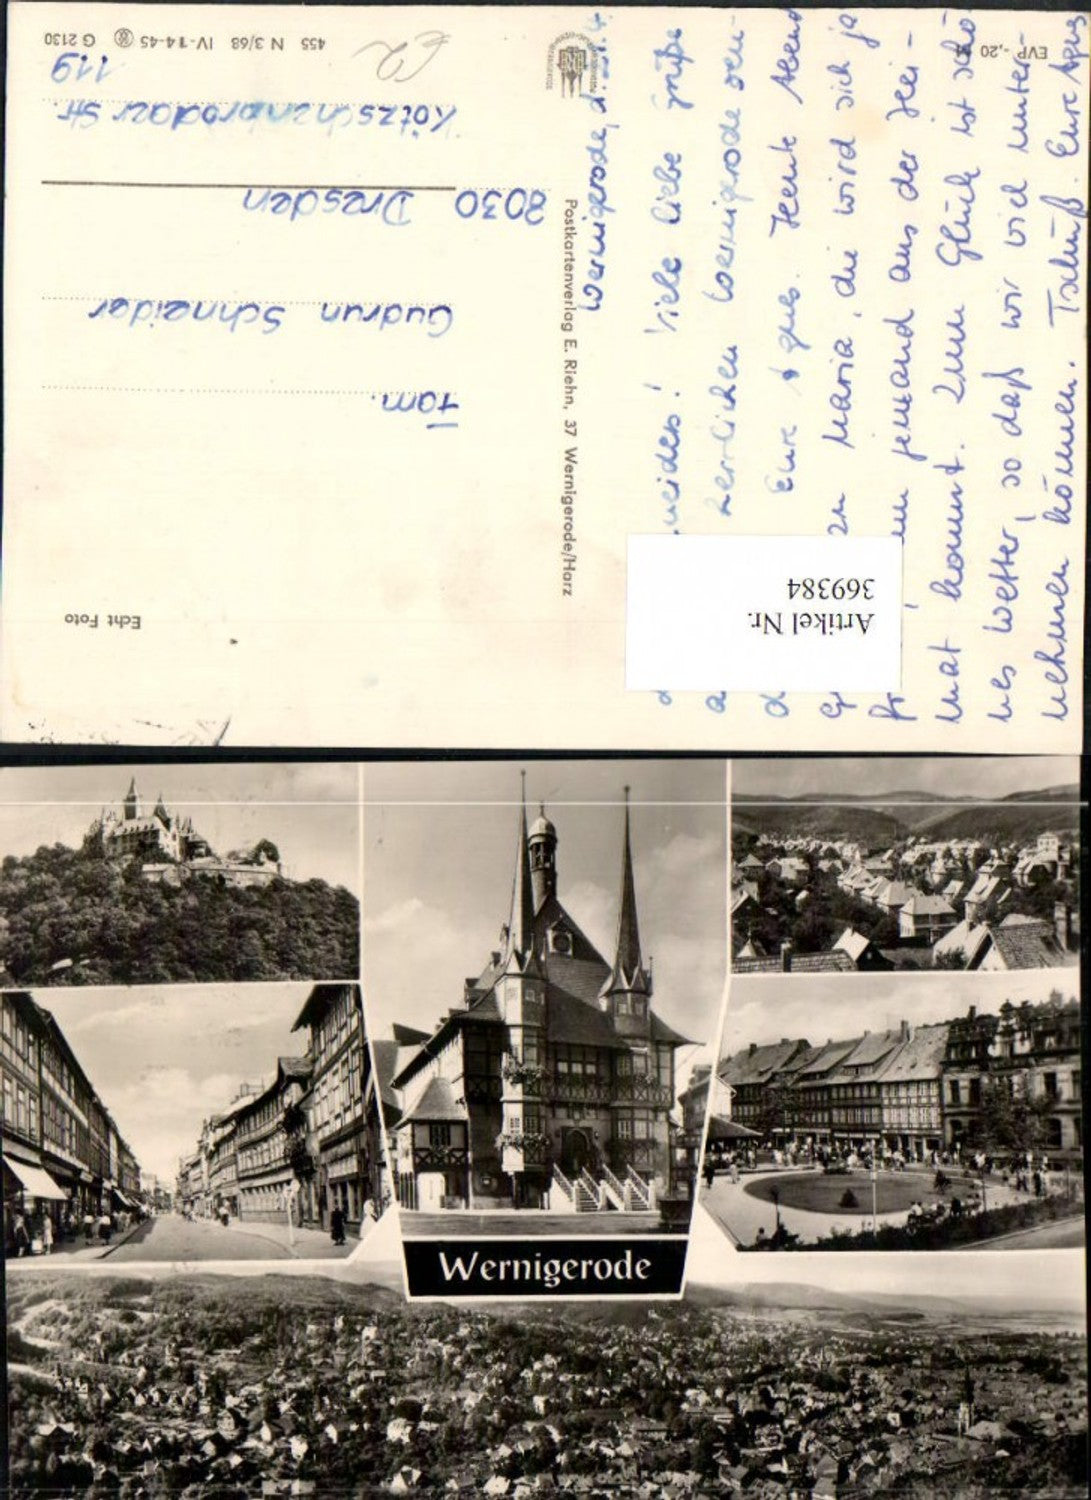 Wernigerode, d.
! Viele liebe Grüße
Wernigerode sen-
Eure Agnes. Heute Abend
zu Maria, die wird sich ja
jemand aus der Hei-
mat kommt. Zum Glück ist schö-
nes Wetter, so daß wir viel unter-
nehmen können. Tschüß. Eure Agnes
EVP -,20 M
Postkartenverlag E. Riehn, 37 Wernigerode/Harz
Echt Foto
Fam.
Gudrun Schneider
8030 Dresden
Kötzschenbrodaer Str.
119
455 N 3/68 IV-14-45 G 2130
Artikel Nr.
369384
Wernigerode